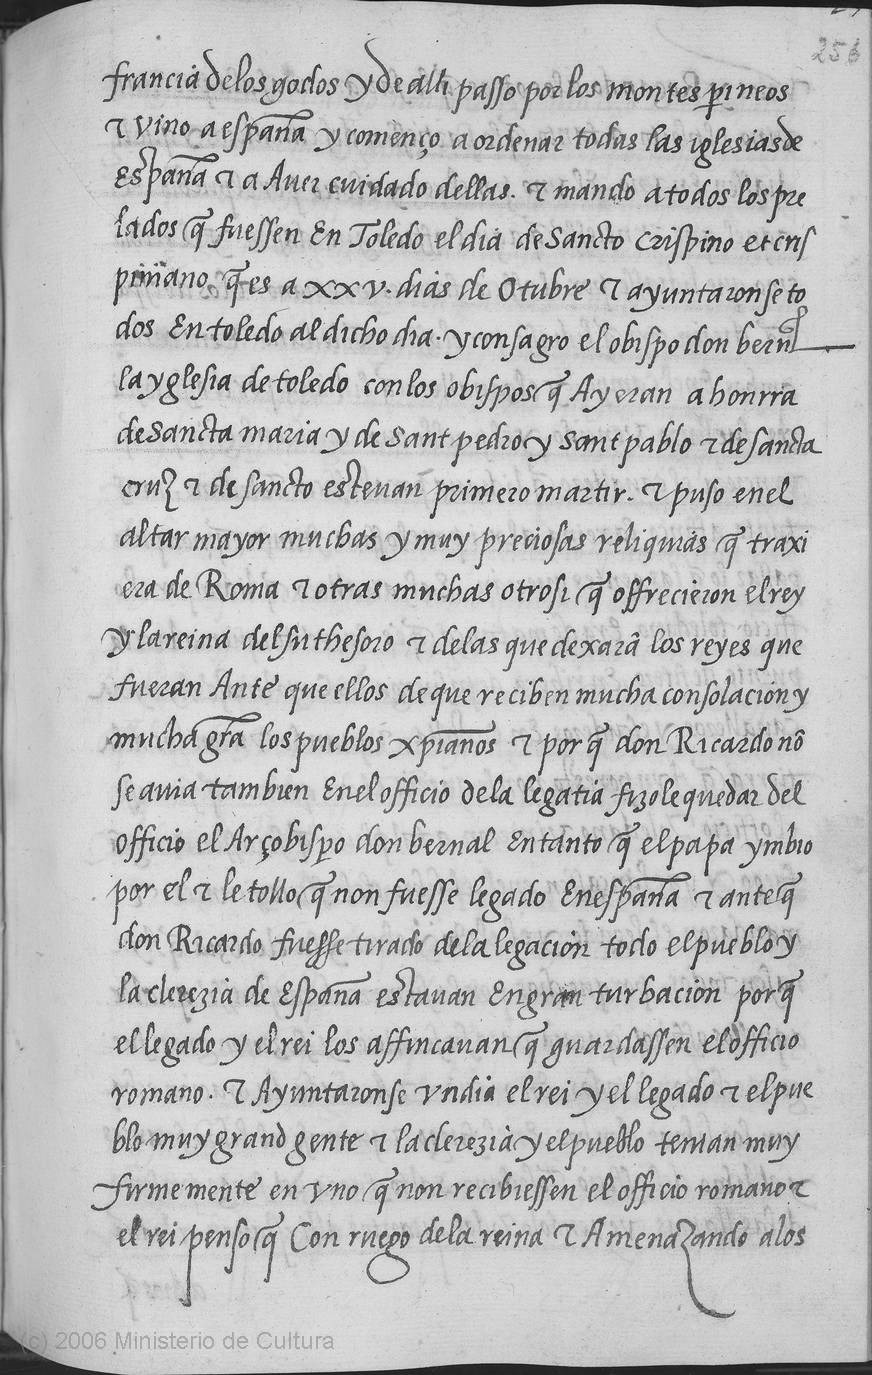 256
francia delos godos y de alli passo por los montes pineos
τ vino a españa y començo a ordenar todas las iglesias de
España τ a Auer cuidado dellas. τ mando a todos los pre
lados q̃ fuessen En Toledo el dia de Sancto Crispino et cris
piniano. q̃ es a xxv. dias de Otubre τ ayuntaronse to
dos En toledo al dicho dia. y consagro el obispo don bernl
la yglesia de toledo con los obispos q̃ Ay eran a honrra
de Sancta maria y de Sant pedro y Sant pablo τ de sancta
cruz τ de sancto esteuan primero martir. τ puso en el
altar mayor muchas y muy preciosas reliquias q̃ traxi
era de Roma τ otras muchas otrosi q̃ offrecieron el rey
y la reina del su thesoro τ delas que dexarã los reyes que
fueran Ante que ellos de que reciben mucha consolacion y
mucha gr̃a los pueblos xp̃ianos τ por q̃ don Ricardo nõ
se auia tambien En el officio de la legatia fizole quedar del
officio el Arçobispo don bernal En tanto q̃ el papa ymbio
por el τ le tollo q̃ non fuesse legado En españa τ ante q̃
don Ricardo fuesse tirado de la legacion todo el pueblo y
la clerezia de España estauan En gran turbacion porq̃
el legado y el rei los affincauan q̃ guardassen el officio
romano. τ Ayuntaronse vn dia el rei y el legado τ el pue
blo muy grand gente τ la clerezia y el pueblo tenian muy
firmemente en vno q̃ non recibiessen el officio romano τ
el rei penso q̃ Con ruego de la reina τ Amenazando a los
(c) 2006 Ministerio de Cultura